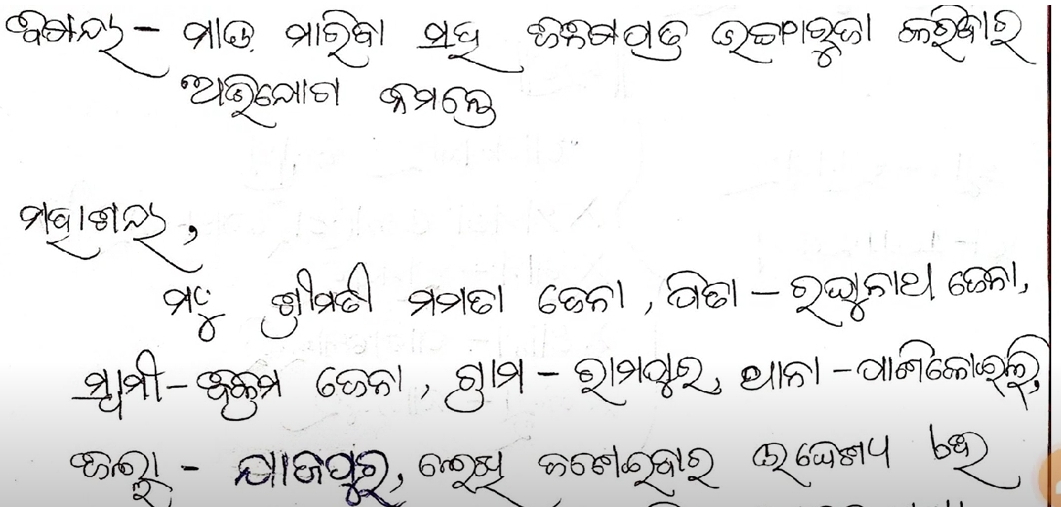 ବିଷୟ - ମାଡ ମାରିବା ସହ ଜିନିଷପତ୍ର ଭଙ୍ଗାରୁଜା କରିବାର
ଅଭିଯୋଗ ସମ୍ପର୍କରେ
ମହାଶୟ,
ମୁଁ ଶ୍ରୀମତୀ ମମତା ଜେନା, ପିତା - ରଘୁନାଥ ଜେନା,
ସ୍ୱାମୀ - ବିକ୍ରମ ଜେନା, ଗ୍ରାମ - ରାମପୁର, ଥାନା - ପାଣିକୋଇଲି,
ଜିଲ୍ଲା - ଯାଜପୁର, ଲେଖି ଜଣାଇବାର ଉଦ୍ଦେଶ୍ୟ